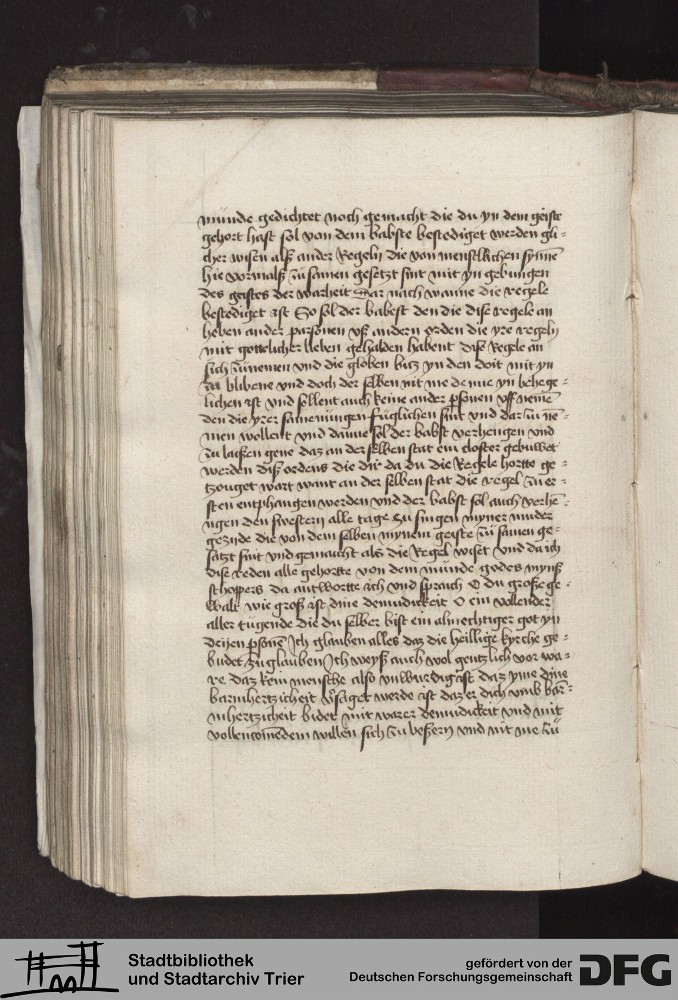 münde gedichtet noch gemacht die du yn dem geiste
gehort hast sol von dem babste bestediget werden gli-
cher wisen alß ander Regeln die von menschlichen synnē
hie vormalß zu samen gesetzt sint mit yn gebungen
des geistes der warheit Dar nach wanne die regele
bestediget ist So sol der babest den die dise regele an
heben ander parsonen vß andern orden die yre regeln
mit gottelicher lieben gehalden habent diß Regele an
sich zu nemen vnd die globen biß yn den doit mit yn
zu blibene vnd doch der selben nit me de nue yn behege-
lichen ist vnd sollent auch keine ander psonen vff nemē
den die yrer samenüngen füglichen sint vnd dar zu ne-
men wollent vnd danne sol der babst verhengen vnd
zu laißen gene daz an der selben stat ein closter gebuwet
werden diß ordens die dir da du die Regele hortte ge-
tzouget wart want an der selben stat die regel zu er-
sten entphangen werden vnd der babst sol auch verhē-
ngen den swestern alle tage zu singen myner muder
gezyde die von dem selben mynem geiste zu samen ge-
satzt sint vnd gemacht als die Regel wiset Vnd da ich
dise reden alle gehortte von dem münde godes mynß
schoppers da antwortte ich vnd sprach O du große ge-
walt wie groß ist dine demudickeit O ein vollender
aller tügende die du selber bist ein almechtiger got yn
drijen psonē Ich glauben alles daz die heillige kyrche ge-
budet zu glauben Ich weyß auch wol gentzlich vor wa-
re daz kein mensche also vnwurdig ist daz yme dine
barmhertzicheit vsaget werde ist daz er dich vmb bar-
mhertzicheit bidet mit warer demudickeit vnd mit
vollencomēdem willen sich zu beßern vnd nit me zü
Stadtbibliothek
und Stadtarchiv Trier
gefördert von der
Deutschen Forschungsgemeinschaft
DFG